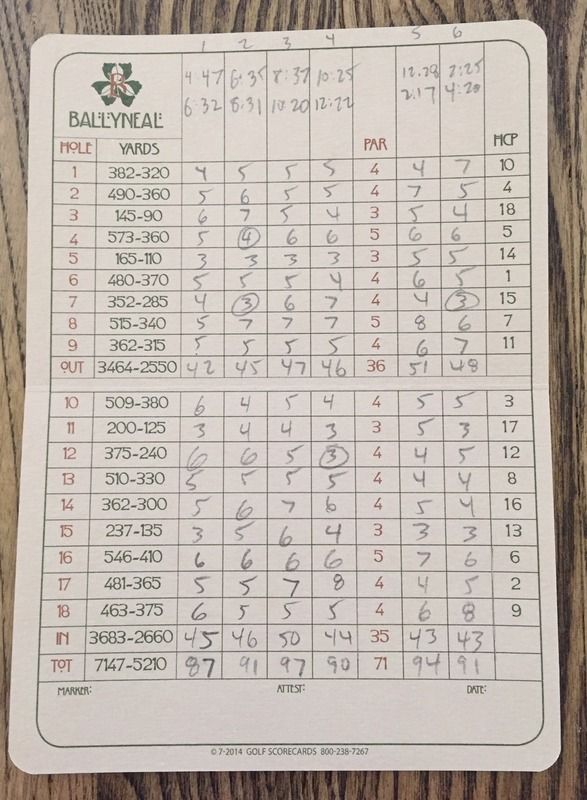 1 2 3 4 5 6
4:47 6:35 8:37 10:25 12:28 2:25
6:32 8:31 10:20 12:22 2:17 4:20
BALLYNEAL
HOLE YARDS PAR HCP
1 382-320 4 5 5 5 4 4 7 10
2 490-360 5 6 5 5 4 7 5 4
3 145-90 6 7 5 4 3 5 4 18
4 573-360 5 4 6 6 5 6 6 5
5 165-110 3 3 3 3 3 5 5 14
6 480-370 5 5 5 4 4 6 5 1
7 352-285 4 3 6 7 4 4 3 15
8 515-340 5 7 7 7 5 8 6 7
9 362-315 5 5 5 5 4 6 7 11
OUT 3464-2550 42 45 47 46 36 51 48
10 509-380 6 4 5 4 4 5 5 3
11 200-125 3 4 4 3 3 5 3 17
12 375-240 6 6 5 3 4 4 5 12
13 510-330 5 5 5 5 4 4 4 8
14 362-300 5 6 7 6 4 5 4 16
15 237-135 3 5 6 4 3 3 3 13
16 546-410 6 6 6 6 5 7 6 6
17 481-365 5 5 7 8 4 4 5 2
18 463-375 6 5 5 5 4 6 8 9
IN 3683-2660 45 46 50 44 35 43 43
TOT 7147-5210 87 91 97 90 71 94 91
MARKER: ATTEST: DATE:
© 7-2014 GOLF SCORECARDS 800-238-7267